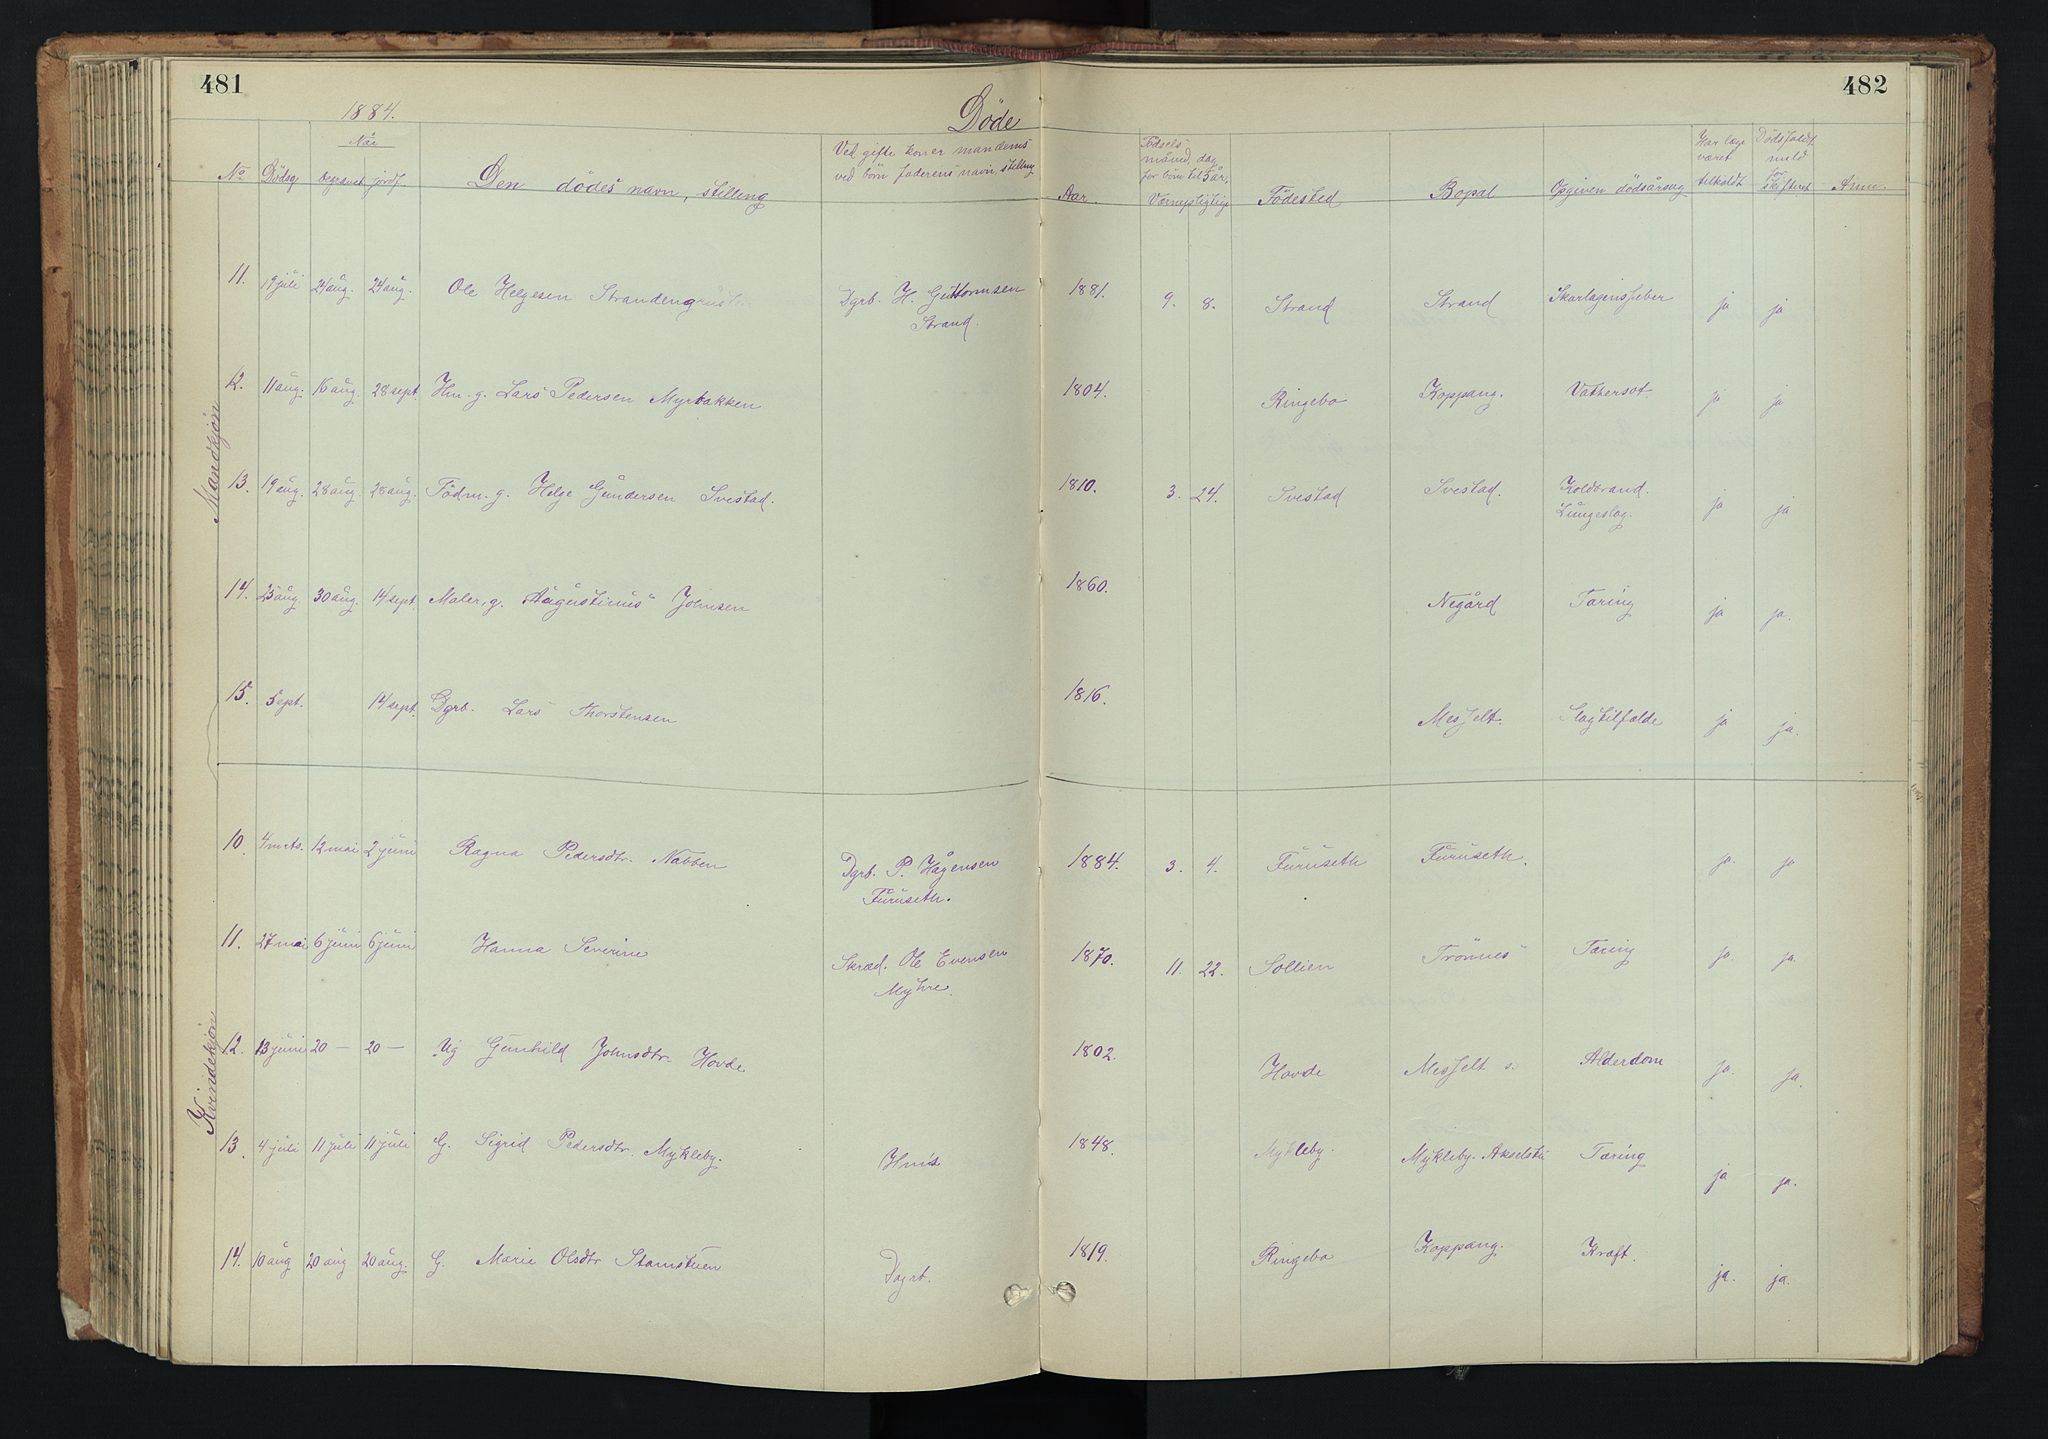 481
482
1884.
Döde
No Dödsg begravet jordf. Når
Den dödes navn, stilling
Ved gifte koner mandens
ved börn faderens navn, stilling
Aar
Födsels
måned, dag
for börn til 5 år,
Værnepligtige
Födested
Bopal
Opgiven dödsårsag
Har læge
været
tilkaldt
Dödsfaldt
meld
for
skifteret
Anm.
Mandkjön
11. 19 juli 24 aug. 24 aug. Ole Helgesen Strandengrusten Dgrb. H. Guttormsen
Strand.
1881. 9. 8. Strand Strand Skarlagensfeber ja ja
12. 11 aug. 16 aug. 28 sept. Hm. g. Lars Pedersen Myrbakken 1804. Ringebo Koppang. Vathersot. ja ja
13. 19 aug. 28 aug. 28 aug. Födm. g. Helge Gundersen Svestad. 1810. 3. 24. Svestad Svestad. Koldbrand.
Lungeslag. ja ja
14. 25 aug. 30 aug. 14 sept Maler, g. Augustinus Johnsen 1860. Negård Tæring ja ja.
15. 5 sept. 14 sept. Dgrb. Lars Thorstensen 1816. Messelt. Slagtilfælde ja ja.
Kvindekjön
10. 4 12 mai 2 juni Ragna Pedersdtr. Nabben Dgrb. P. Hågensen
Furuseth.
1884. 3. 4. Furuseth Furuseth. ja. ja
11. 27 mai 6 juni 6 juni Hanna Severine Skræd. Ole Evensen
Myhre.
1870. 11. 22. Sollien Trönnes Tæring ja. ja.
12. 13 juni 20 — 20 — Ug Gunhild Johnsdtr. Hovde 1802. Hovde Messelt s. Alderdom ja. ja.
13. 4 juli 11 juli 11 juli G. Sigrid Pedersdtr. Mykleby. Hm's 1848. Mykleby. Mykleby. Akselstu Tæring ja ja.
14. 10 aug 20 aug 20 aug. G. Marie Olsdtr Stamstuen Dagrb. 1819. Ringebo Koppang. Kræft. ja. ja.